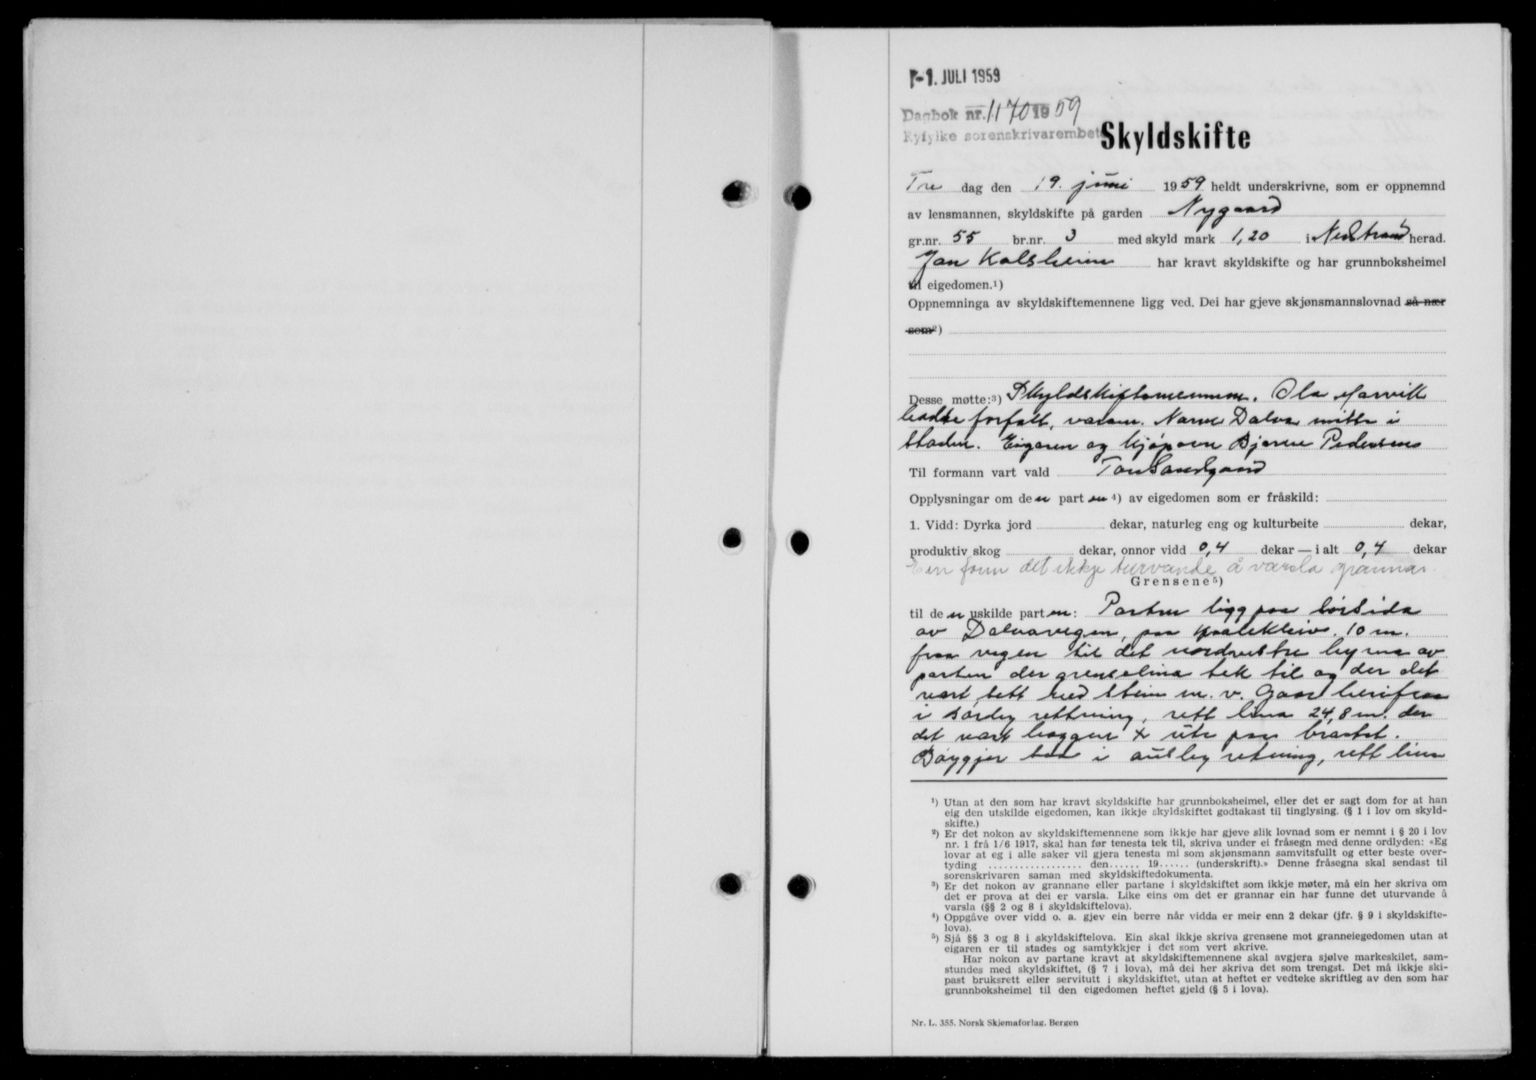 -1. JULI 1959
Dagbok nr. 1170 1959
Ryfylke sorenskrivarembete
Skyldskifte
Fre dag den 19. juni 1959 heldt underskrivne, som er oppnemnd
av lensmannen, skyldskifte på garden Nygaard
gr.nr. 55 br.nr. 3 med skyld mark 1,20 i Nedstrand herad.
Jan Kolsheim har kravt skyldskifte og har grunnboksheimel
til eigedomen.¹)
Oppnemninga av skyldskiftemennene ligg ved. Dei har gjeve skjønsmannslovnad så nær
som²)
Desse møtte:³) Skyldskiftemennene. Ola Marvik
hadde forfall, varam. Narve Dalva møtte i
staden. Eigaren og kjøparen Bjarne Pedersen
Til formann vart vald Tor Sandgaard
Opplysningar om den parten ⁴) av eigedomen som er fråskild:
1. Vidd: Dyrka jord dekar, naturleg eng og kulturbeite dekar,
produktiv skog dekar, onnor vidd 0,4 dekar — i alt 0,4 dekar
Ein fann det ikkje turvande å varsla grannar.
Grensene⁵)
til den uskilde parten: Parten ligg paa sørsida
av Dalvavegen, paa 10 m.
fraa vegen til det nordvestre hyrna av
parten der grenselina tek til og der det
vart sett ned stein m. v. Gaar herifraa
i sørleg rettning, rett lina 24,8 m. der
det vart hoggen x ute paa brattet.
Bøygjer saa i austleg retning, rett lina
¹) Utan at den som har kravt skyldskifte har grunnboksheimel, eller det er sagt dom for at han
eig den utskilde eigedomen, kan ikkje skyldskiftet godtakast til tinglysing. (§ 1 i lov om skyld-
skifte.)
²) Er det nokon av skyldskiftemennene som ikkje har gjeve slik lovnad som er nemnt i § 20 i lov
nr. 1 frå 1/6 1917, skal han før tenesta tek til, skriva under ei fråsegn med denne ordlyden: «Eg
lovar at eg i alle saker vil gjera tenesta mi som skjønsmann samvitsfullt og etter beste over-
tyding .................. den...... 19...... (underskrift).» Denne fråsegna skal sendast til
sorenskrivaren saman med skyldskiftedokumenta.
³) Er det nokon av grannane eller partane i skyldskiftet som ikkje møter, må ein her skriva om
det er prova at dei er varsla. Like eins om det er grannar ein har funne det uturvande å
varsla (§§ 2 og 8 i skyldskiftelova).
⁴) Oppgåve over vidd o. a. gjev ein berre når vidda er meir enn 2 dekar (jfr. § 9 i skyldskifte-
lova).
⁵) Sjå §§ 3 og 8 i skyldskiftelova. Ein skal ikkje skriva grensene mot granneiegedomen utan at
eigaren er til stades og samtykkjer i det som vert skrive.
Har nokon av partane kravt at skyldskiftemennene skal avgjera sjølve markeskilet, sam-
stundes med skyldskiftet, (§ 7 i lova), må dei her skriva det som trengst. Det må ikkje ski-
past bruksrett eller servitutt i skyldskiftet, utan at heftet er vedteke skriftleg av den som har
grunnboksheimel til den eigedomen heftet gjeld (§ 5 i lova).
Nr. L. 355. Norsk Skjemaforlag, Bergen